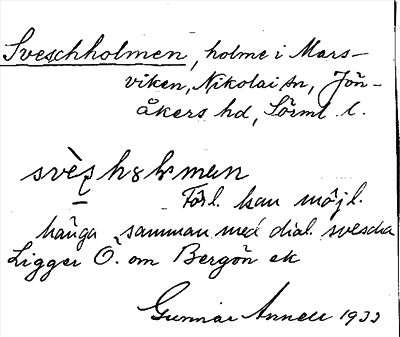 Sveschholmen, holme i Mars-
viken, Nikolai sn, Jön-
åkers hd, Sörml. l.
Förl. kan möjl.
hänga samman med dial. svescha
Ligger Ö. om Bergön ek
Gunnar Annell 1933